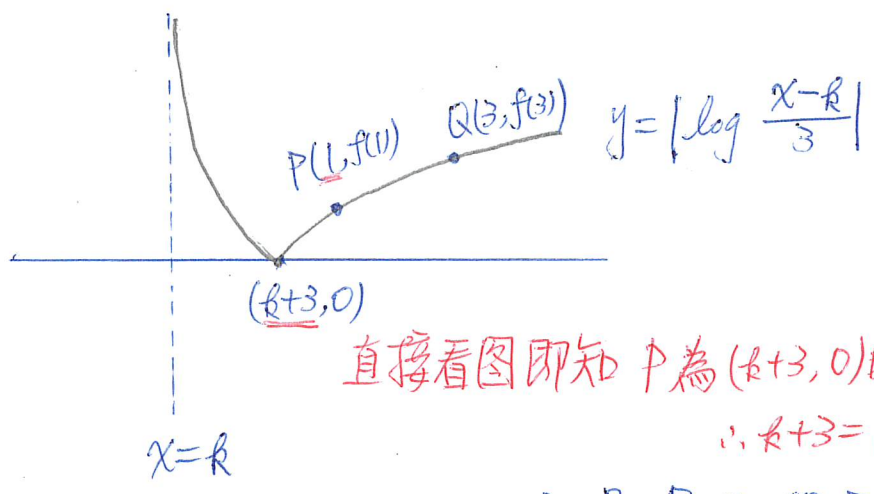 P(1,f(1))
Q(3,f(3))
y=|log (x-k)/3|
(k+3,0)
直接看图即知 P為(k+3,0)
∴k+3=
x=k